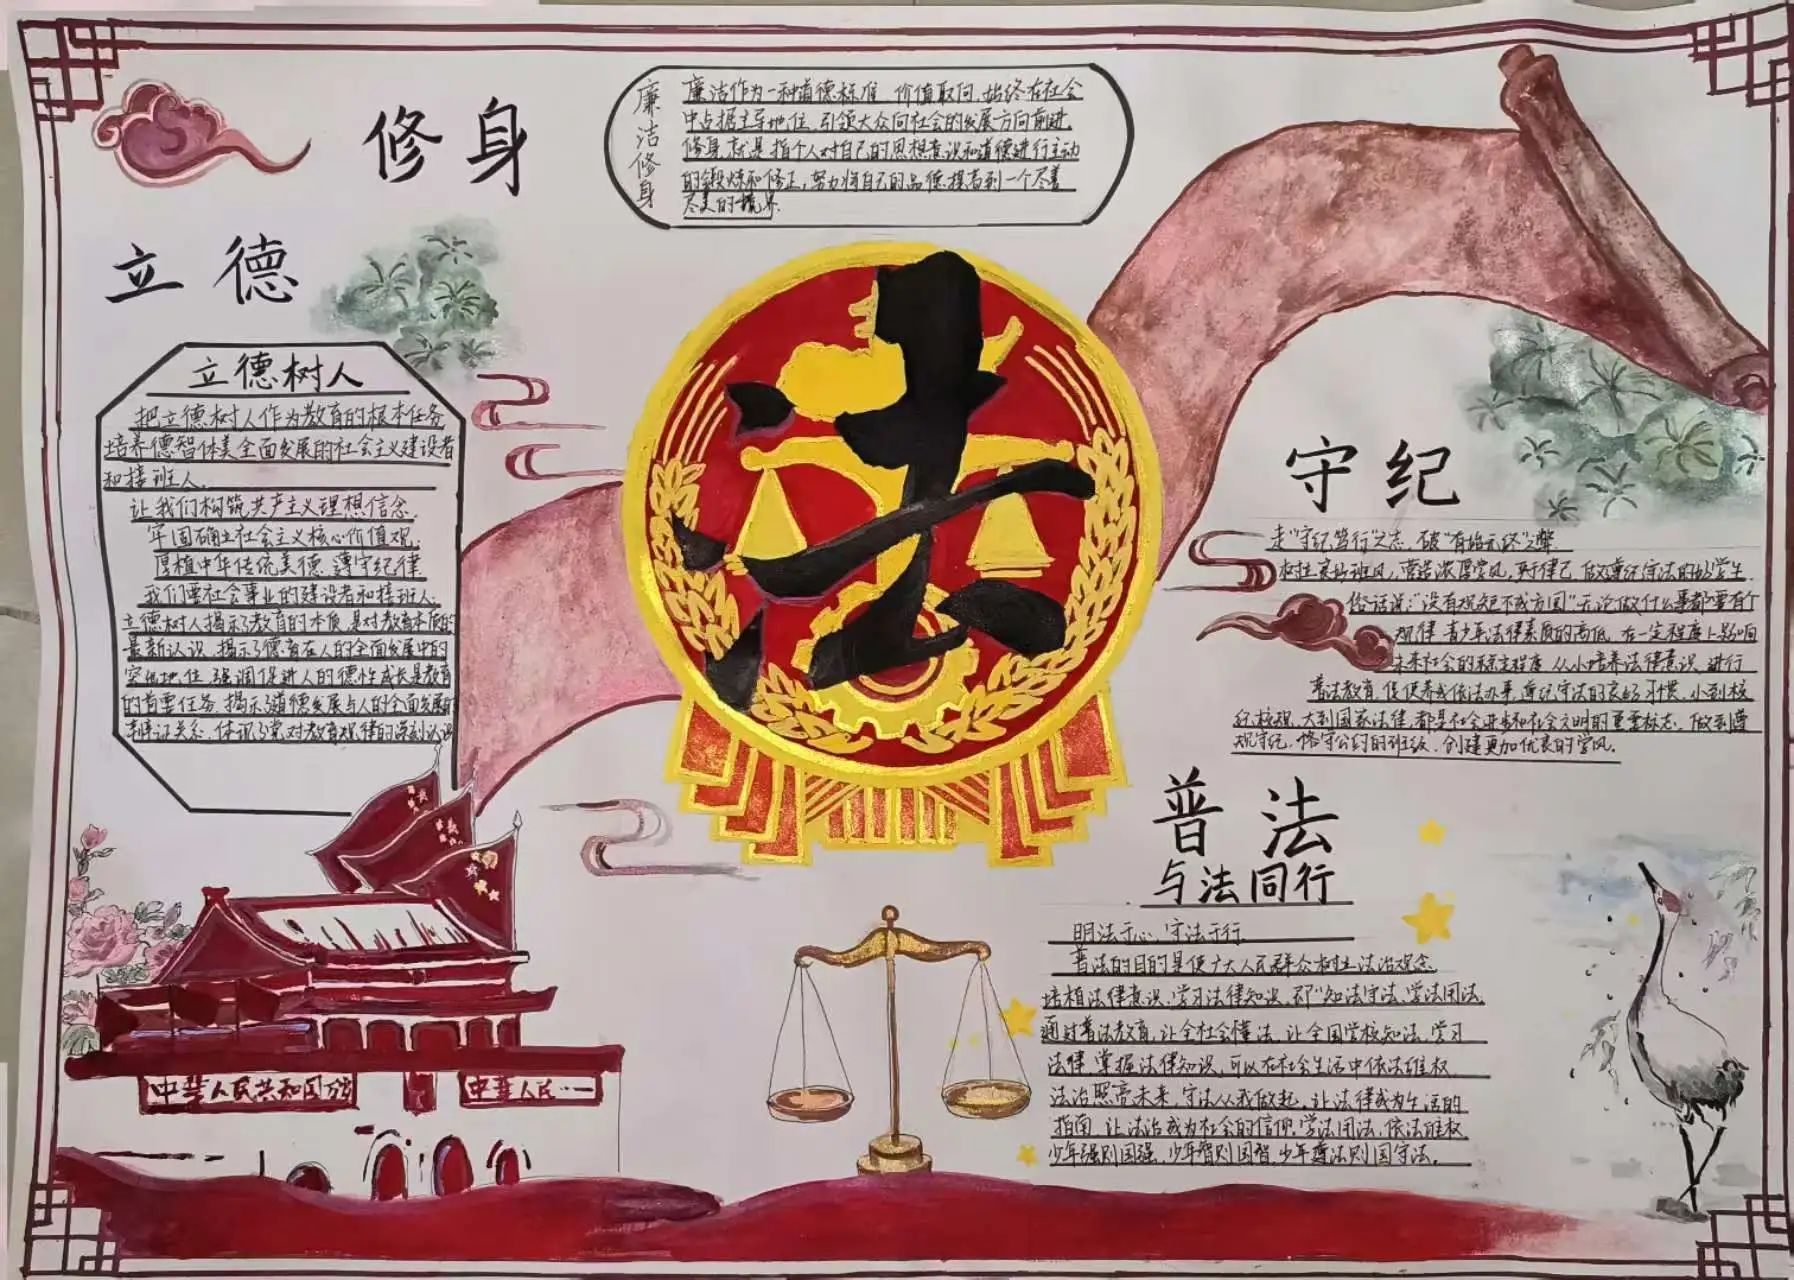 修身
立德
廉洁修身
廉洁作为一种道德标准 价值取向,始终在社会
中占据主导地位,引领大众向社会的发展方向前进,
修身,就是指个人对自己的思想意识和道德进行主动
的锻炼和修正,努力将自己的品德提高到一个尽善
尽美的境界.
立德树人
把立德树人作为教育的根本任务
培养德智体美全面发展的社会主义建设者
和接班人.
让我们构筑共产主义理想信念.
牢固确立社会主义核心价值观;
厚植中华传统美德,遵守纪律
我们要社会事业的建设者和接班人.
立德树人揭示了教育的本质,是对教育本质的
最新认识,揭示了德育在人的全面发展中的
突出地位,强调促进人的德性成长是教育
的首要任务,揭示了道德发展与人的全面发展的
辩证关系,体现了党对教育规律的深刻认识
法
守纪
走"守纪笃行"之志,破"有始无终"之弊.
树班风,营造浓厚学风,律己,做遵纪守法的好学生.
俗话说:"没有规矩不成方圆"无论做什么事都要有个
规律,青少年法律素质的高低,在一定程度上影响
未来社会的稳定程度,从小培养法律意识,进行
普法教育,促使养成依法办事,遵纪守法的良好习惯,小到校
纪校规,大到国家法律,都是社会进步和社会文明的重要标志,做到遵
规守纪,恪守公约的班级,创建更加优良的学风.
普法
与法同行
明法于心,守法于行
普法的目的是使广大人民群众树立法治观念
培植法律意识,学习法律知识,即"知法守法,学法用法,
通过普法教育,让全社会懂法,让全国学校知法,学习
法律,掌握法律知识,可以在社会生活中依法维权.
法治照亮未来,守法从我做起,让法律成为生活的
指南,让法治成为社会的信仰,学法用法,依法维权,
少年强则国强,少年智则国智,少年遵法则国守法。
中华人民共和国
中华人民…